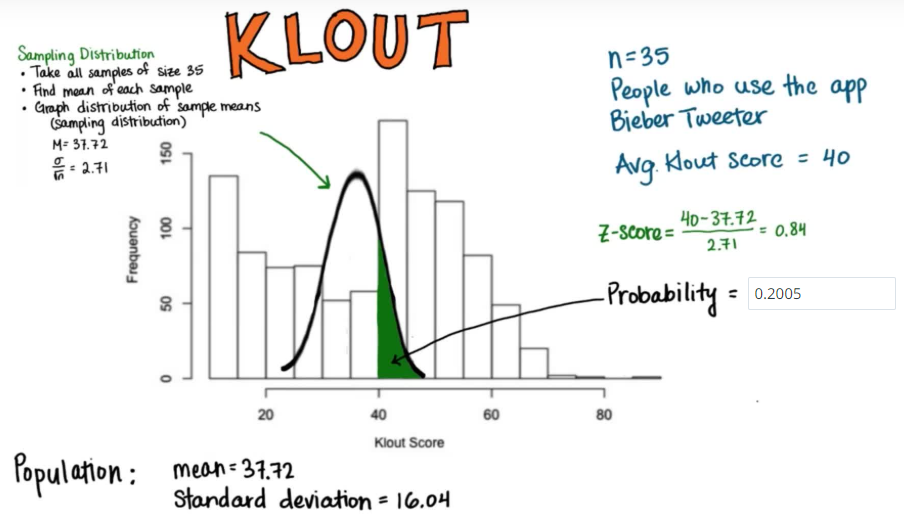 KLOUT
Sampling Distribution
• Take all samples of size 35
• Find mean of each sample
• Graph distribution of sample means
(sampling distribution)
M= 37.72
σ/√n = 2.71
n=35
People who use the app
Bieber Tweeter
Avg. Klout Score = 40
Z-score = 40-37.72/2.71 = 0.84
Probability = 0.2005
Frequency
150
100
50
0
20 40 60 80
Klout Score
Population: mean=37.72
Standard deviation = 16.04